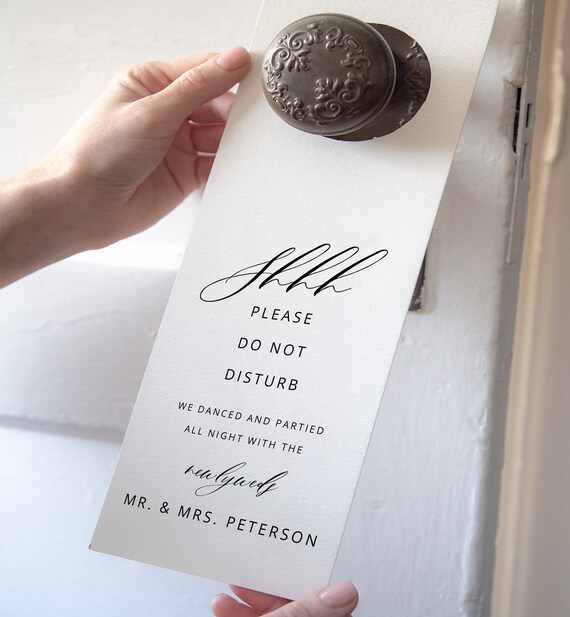 Shhh
PLEASE
DO NOT
DISTURB
WE DANCED AND PARTIED
ALL NIGHT WITH THE
newlyweds
MR. & MRS. PETERSON